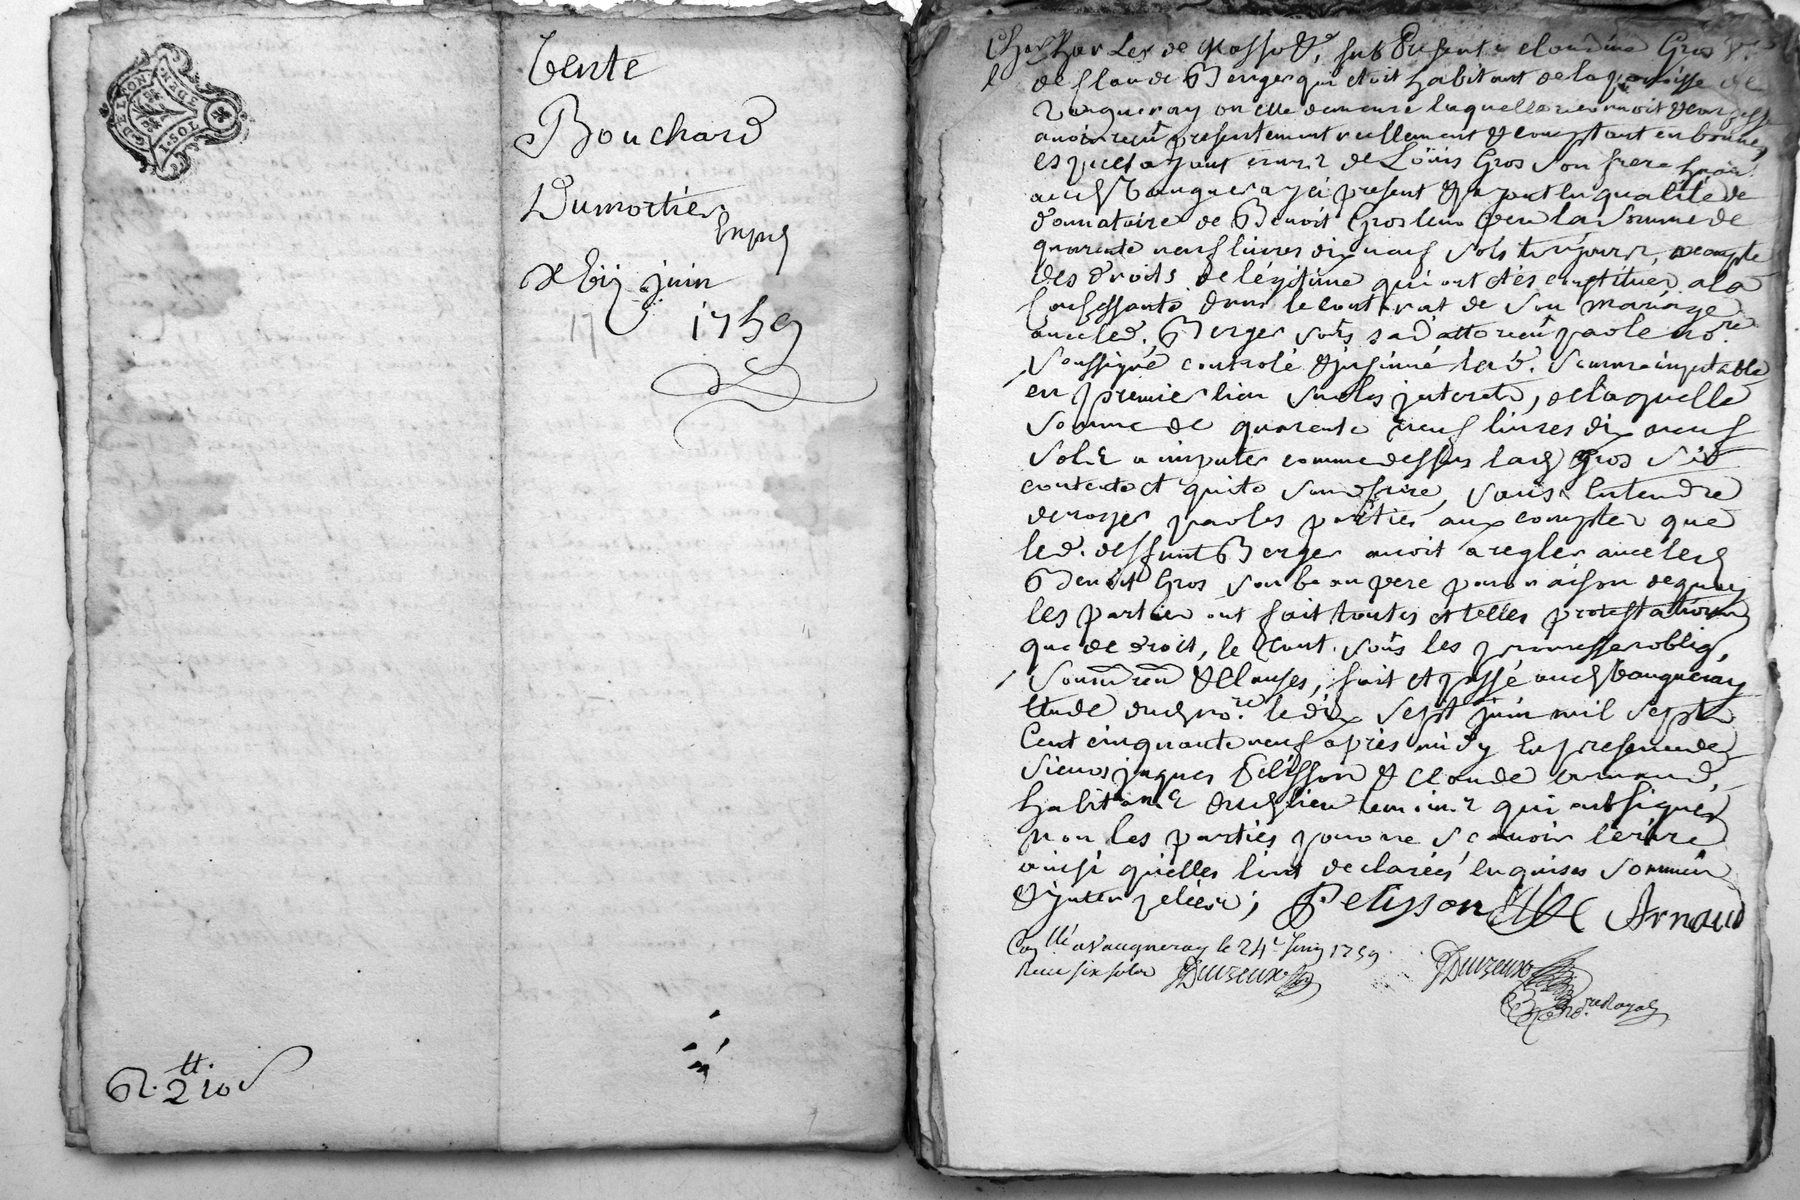 G DE LYON MOYEN PAP
1 SOL
Vente
Bouchard
Dumortier
Exped
XVII juin
17
1759
R. 2 tt. 10 s
de Claude Berger qui etoit habitant de la paroisse de
Vaugneray ou elle demeure laquelle reconnoit & confesse
avoir recu presentement reellement & comptant en bonnes
especes ayant cours de Loüis Gros son frere
aud Vaugneray ici present & en qualité de
donnataire de Benoit Gros leur pere la somme de
quarente neuf livres dix neuf sols tournois, a compte
des droits de légitime qui ont etés constitués a la
Confessante dans le contrat de son mariage
avec led. Berger sous sa datte recu par le no.re
soussigné controlé & insinué lad. somme imputable
en premier lieu sur les interets, de laquelle
somme de quarente neuf livres dix neuf
sols a imputer comme dessus lad Gros s'est
contente et quite son frere, sans entendre
deroger par les parties aux comptes que
led. deffunt Berger avoit a regler avec led
Benoit Gros son beau pere pour raison de quoy
les parties ont fait toutes et telles protestations
que de droit, le tout sous les promesses oblig.
soumōn renōn & clauses, fait et passé aud Vaugneray
Etude dud no.re le dix sept juin mil sept
Cent cinquante neuf après midy En presence de
sieurs jaques Pelisson & Claude Arnaud,
habitans dud lieu temoins qui ont signés
non les parties pour ne scavoir écrire
ainsi qu'elles l'ont declarées enquises sommées
& interpelées; Pelisson Arnaud
Con.llé a Vaugneray le 24.e Juin 1759.
Recu six sols Duvzeux
Duvzeux
no.re Royal